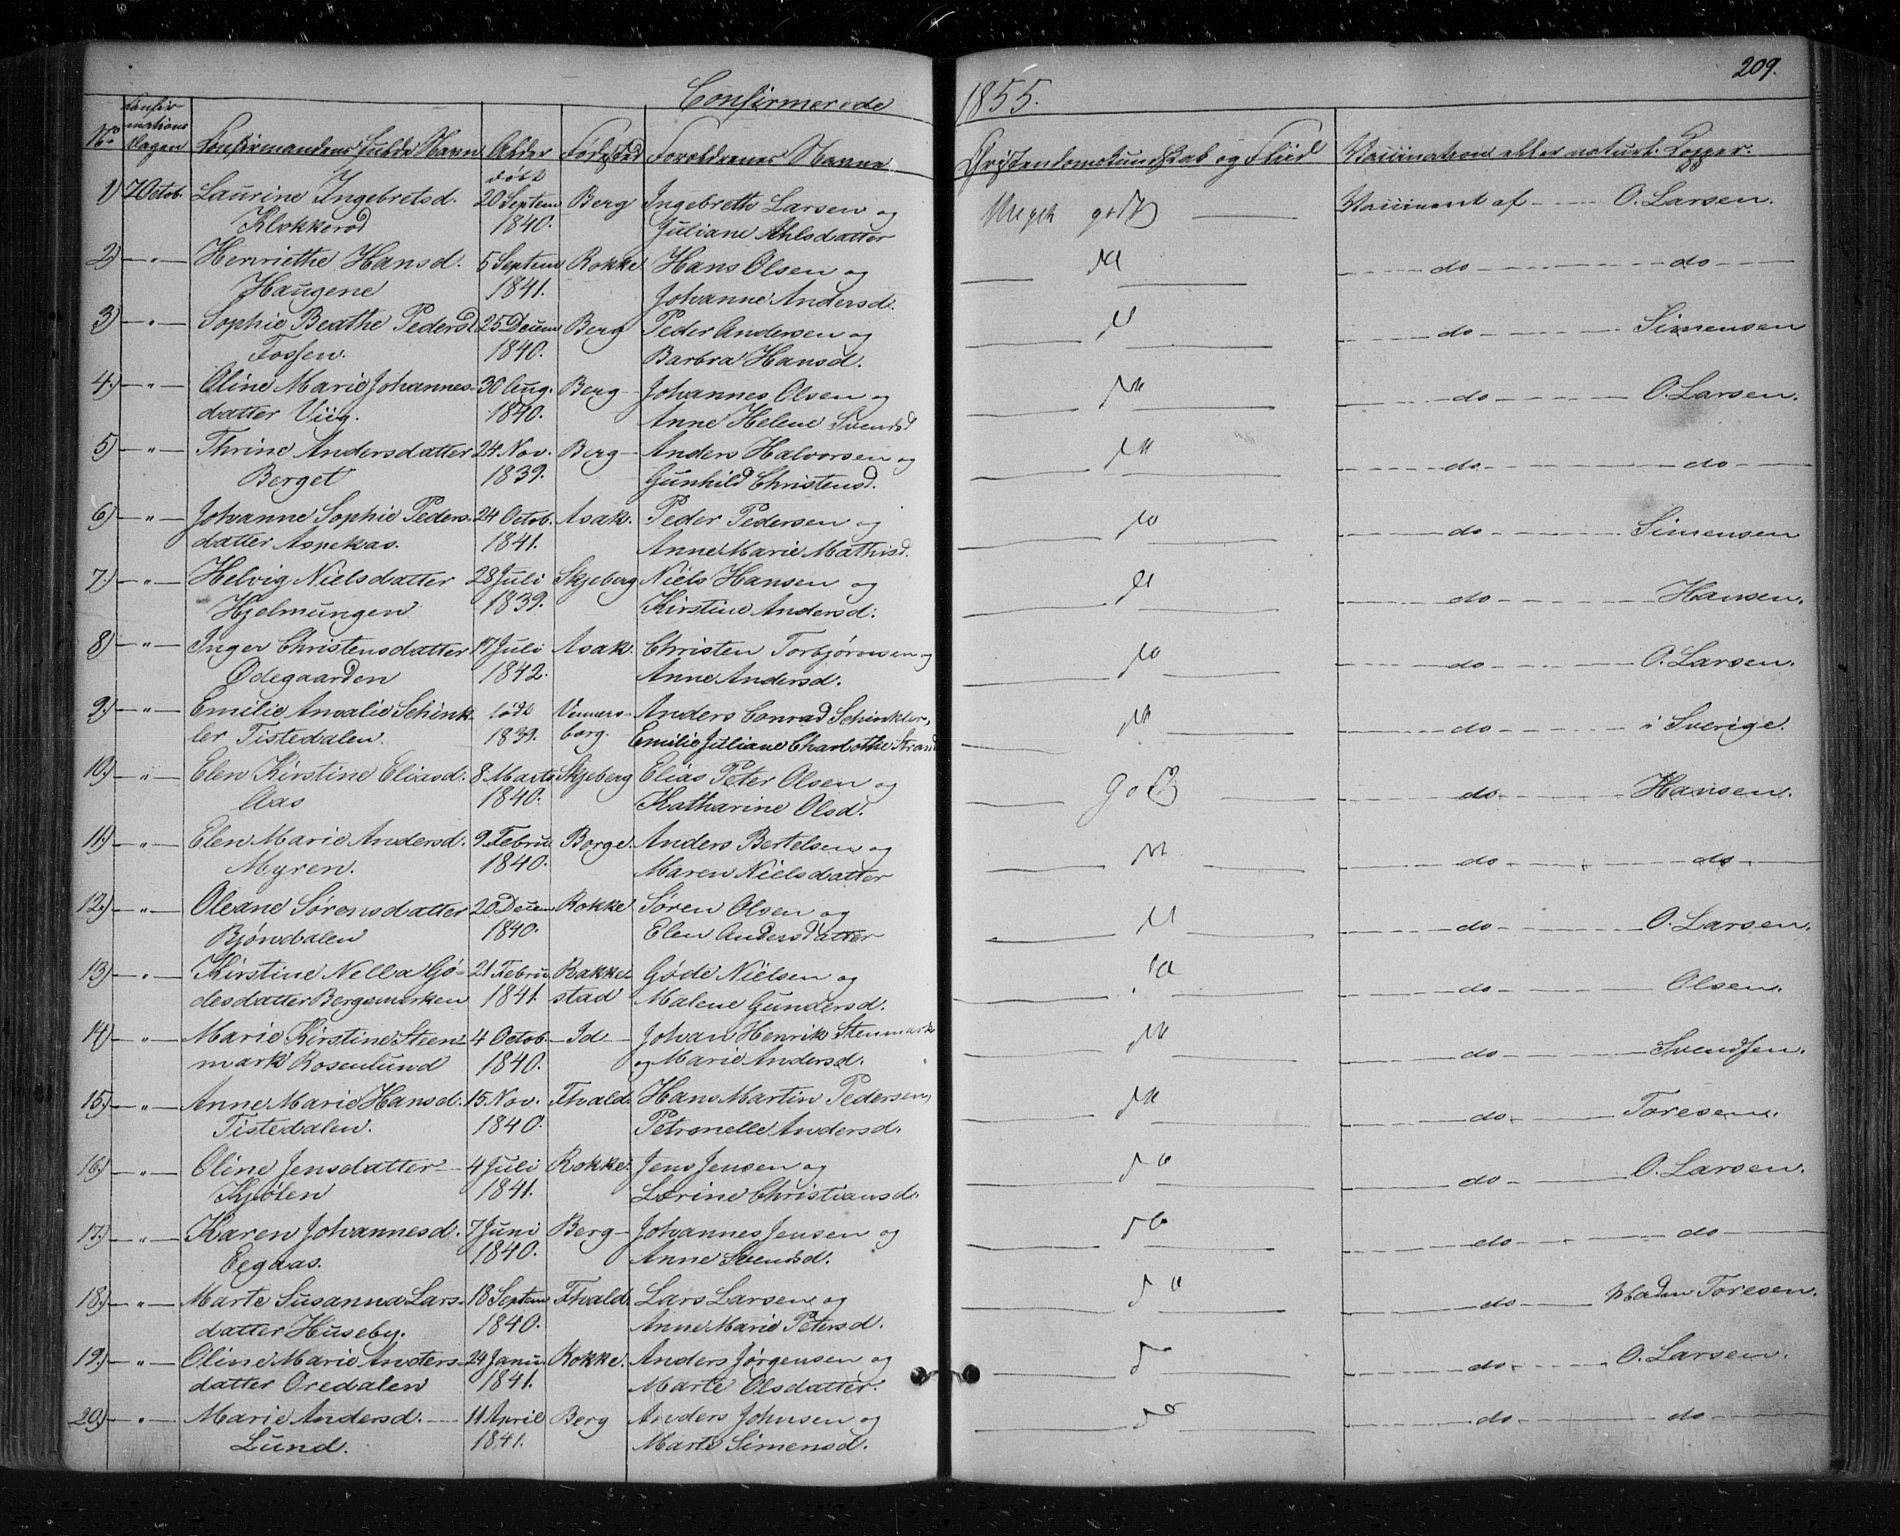 209.
Confirmerede 1855.
No Confirmations Dagen Confirmandens fulde Navn Alder Fødested Forældrenes Navne Christendomskundskab og Fliid Vaccination eller naturl. Kopper.
født do
1) 7 Octob. Laurine Ingebretsd. 20 Septem Berg Ingebreth Larsen og Meget godt Vaccineret af O. Larsen.
Klokkerød 1840. Juliane Ahlsdatter
2) " Henriethe Hansd. 5 Septem Rokke Hans Olsen og do do
Haugene 1841. Johanne Andersd.
3) " Sophie Beathe Pedersd 25 Decem Berg Peder Andersen og do Simensen
Fossen. 1840. Barbra Hansd.
4) " Oline Marie Johannes- 30 Aug. Berg Johannes Olsen og do O. Larsen.
datter Viig. 1840. Anne Helene Svendsd
5) " Thrine Andersdatter 24 Nov. Berg Anders Halvorsen og do do
Berget 1839. Gunhild Christensd.
6) " Johanne Sophie Peders- 24 Octob. Asak. Peder Pedersen og do do Simensen
datter Aspekas. 1841. Anne Marie Mathisd.
7) " Helvig Nielsdatter 28 Juli Skjeberg Niels Hansen og do Hansen.
Hjelmungen 1839. Kirstine Andersd.
8) " Inger Christensdatter 17 Juli Asak. Christen Torbjørnsen og do do O. Larsen.
Ødegaarden 1842. Anne Andersd.
9) " Emilie Amalie Schink- født Venners- Anders Conrad Schinkler, do i Sverige.
ler Tistedalen. 1839. borg. Emilie Juliane Charlothe Strand
10) " Elen Kirstine Eliasd. 8 Marts Skjeberg Elias Peter Olsen og Godt do Hansen.
Aas 1840. Katharine Olsd.
11) " Elen Marie Andersd. 9 Febru Borge. Anders Bertelsen og do do
Myren. 1840. Maren Nielsdatter
12) " Oleane Sørensdatter 20 Decem Rokke Søren Olsen og do O. Larsen.
Bjørndalen 1840. Elen Andersdatter
13) " Kirstine Nella Gø- 21 Febru Rakke- Gøde Nielsen og do Olsen.
desdatter Bergsmarken 1841. stad Malene Gundersd.
14) " Marie Kirstine Steen- 4 Octob Id Johan Henrik Stenmark do Svendsen.
mark Rosenlund 1840. og Marie Andersd.
15) " Anne Marie Hansd. 15 Nov. Fhald. Hans Martin Pedersen, do Toresen.
Tistedalen. 1840. Petronelle Andersd.
16) " Oline Jensdatter 4 Juli Rokke Jens Jensen og do do O. Larsen.
Kjølen 1841. Lorine Christiansd.
17) " Karen Johannesd. 7 Juni Berg Johannes Jensen og do do do
Eegaas. 1840. Anne Svendsd.
18) " Marte Susanna Lars- 18 Septem Fhald. Lars Larsen og do do Madm Toresen.
datter Huseby. 1840. Anne Marie Petersd.
19) " Oline Marie Anders- 24 Janu Rokke. Anders Jørgensen og do do O. Larsen.
datter Oredalen 1841. Marte Olsdatter.
20) " Marie Andersd. 11 April Berg Anders Johnsen og do do do
Lund. 1841. Marte Simensd.